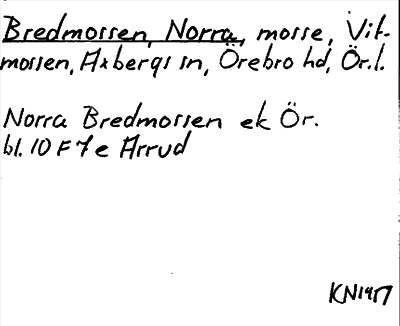 Bredmossen, Norra, mosse, Vit-
mossen, Axbergs sn, Örebro hd, Ör.l.
Norra Bredmossen ek Ör.
bl. 10 F 7 e Arrud